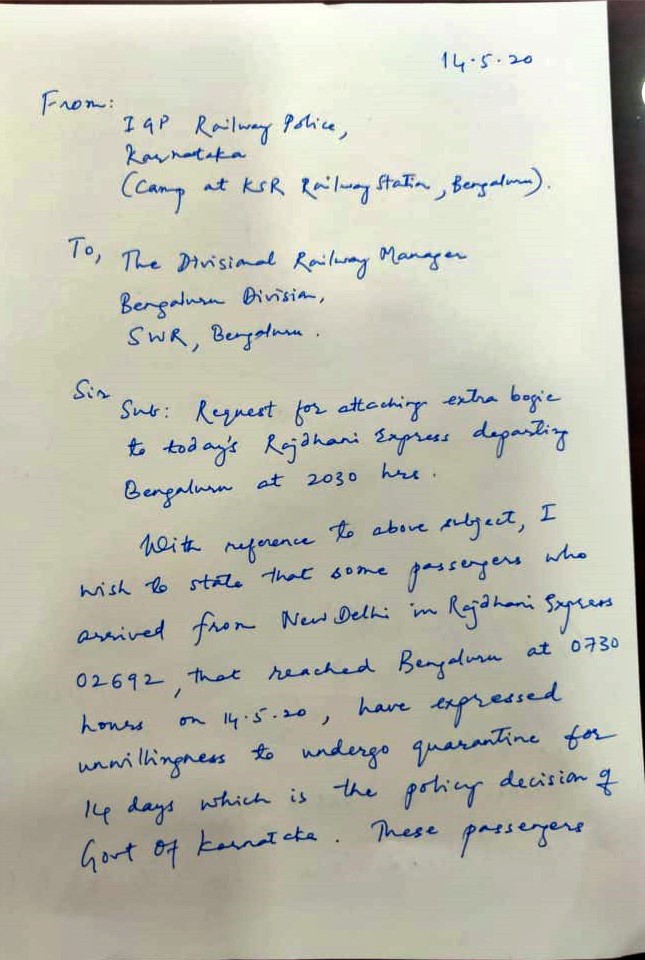 14.5.20
From:
IGP Railway Police,
Karnataka
(Camp at KSR Railway Station, Bengaluru).
To, The Divisional Railway Manager
Bengaluru Division,
SWR, Bengaluru.
Sir
Sub: Request for attaching extra bogie
to today's Rajdhani Express departing
Bengaluru at 2030 hrs.
With reference to above subject, I
wish to state that some passengers who
arrived from New Delhi in Rajdhani Express
02692, that reached Bengaluru at 0730
hours on 14.5.20, have expressed
unwillingness to undergo quarantine for
14 days which is the policy decision of
Govt Of Karnataka. These passengers